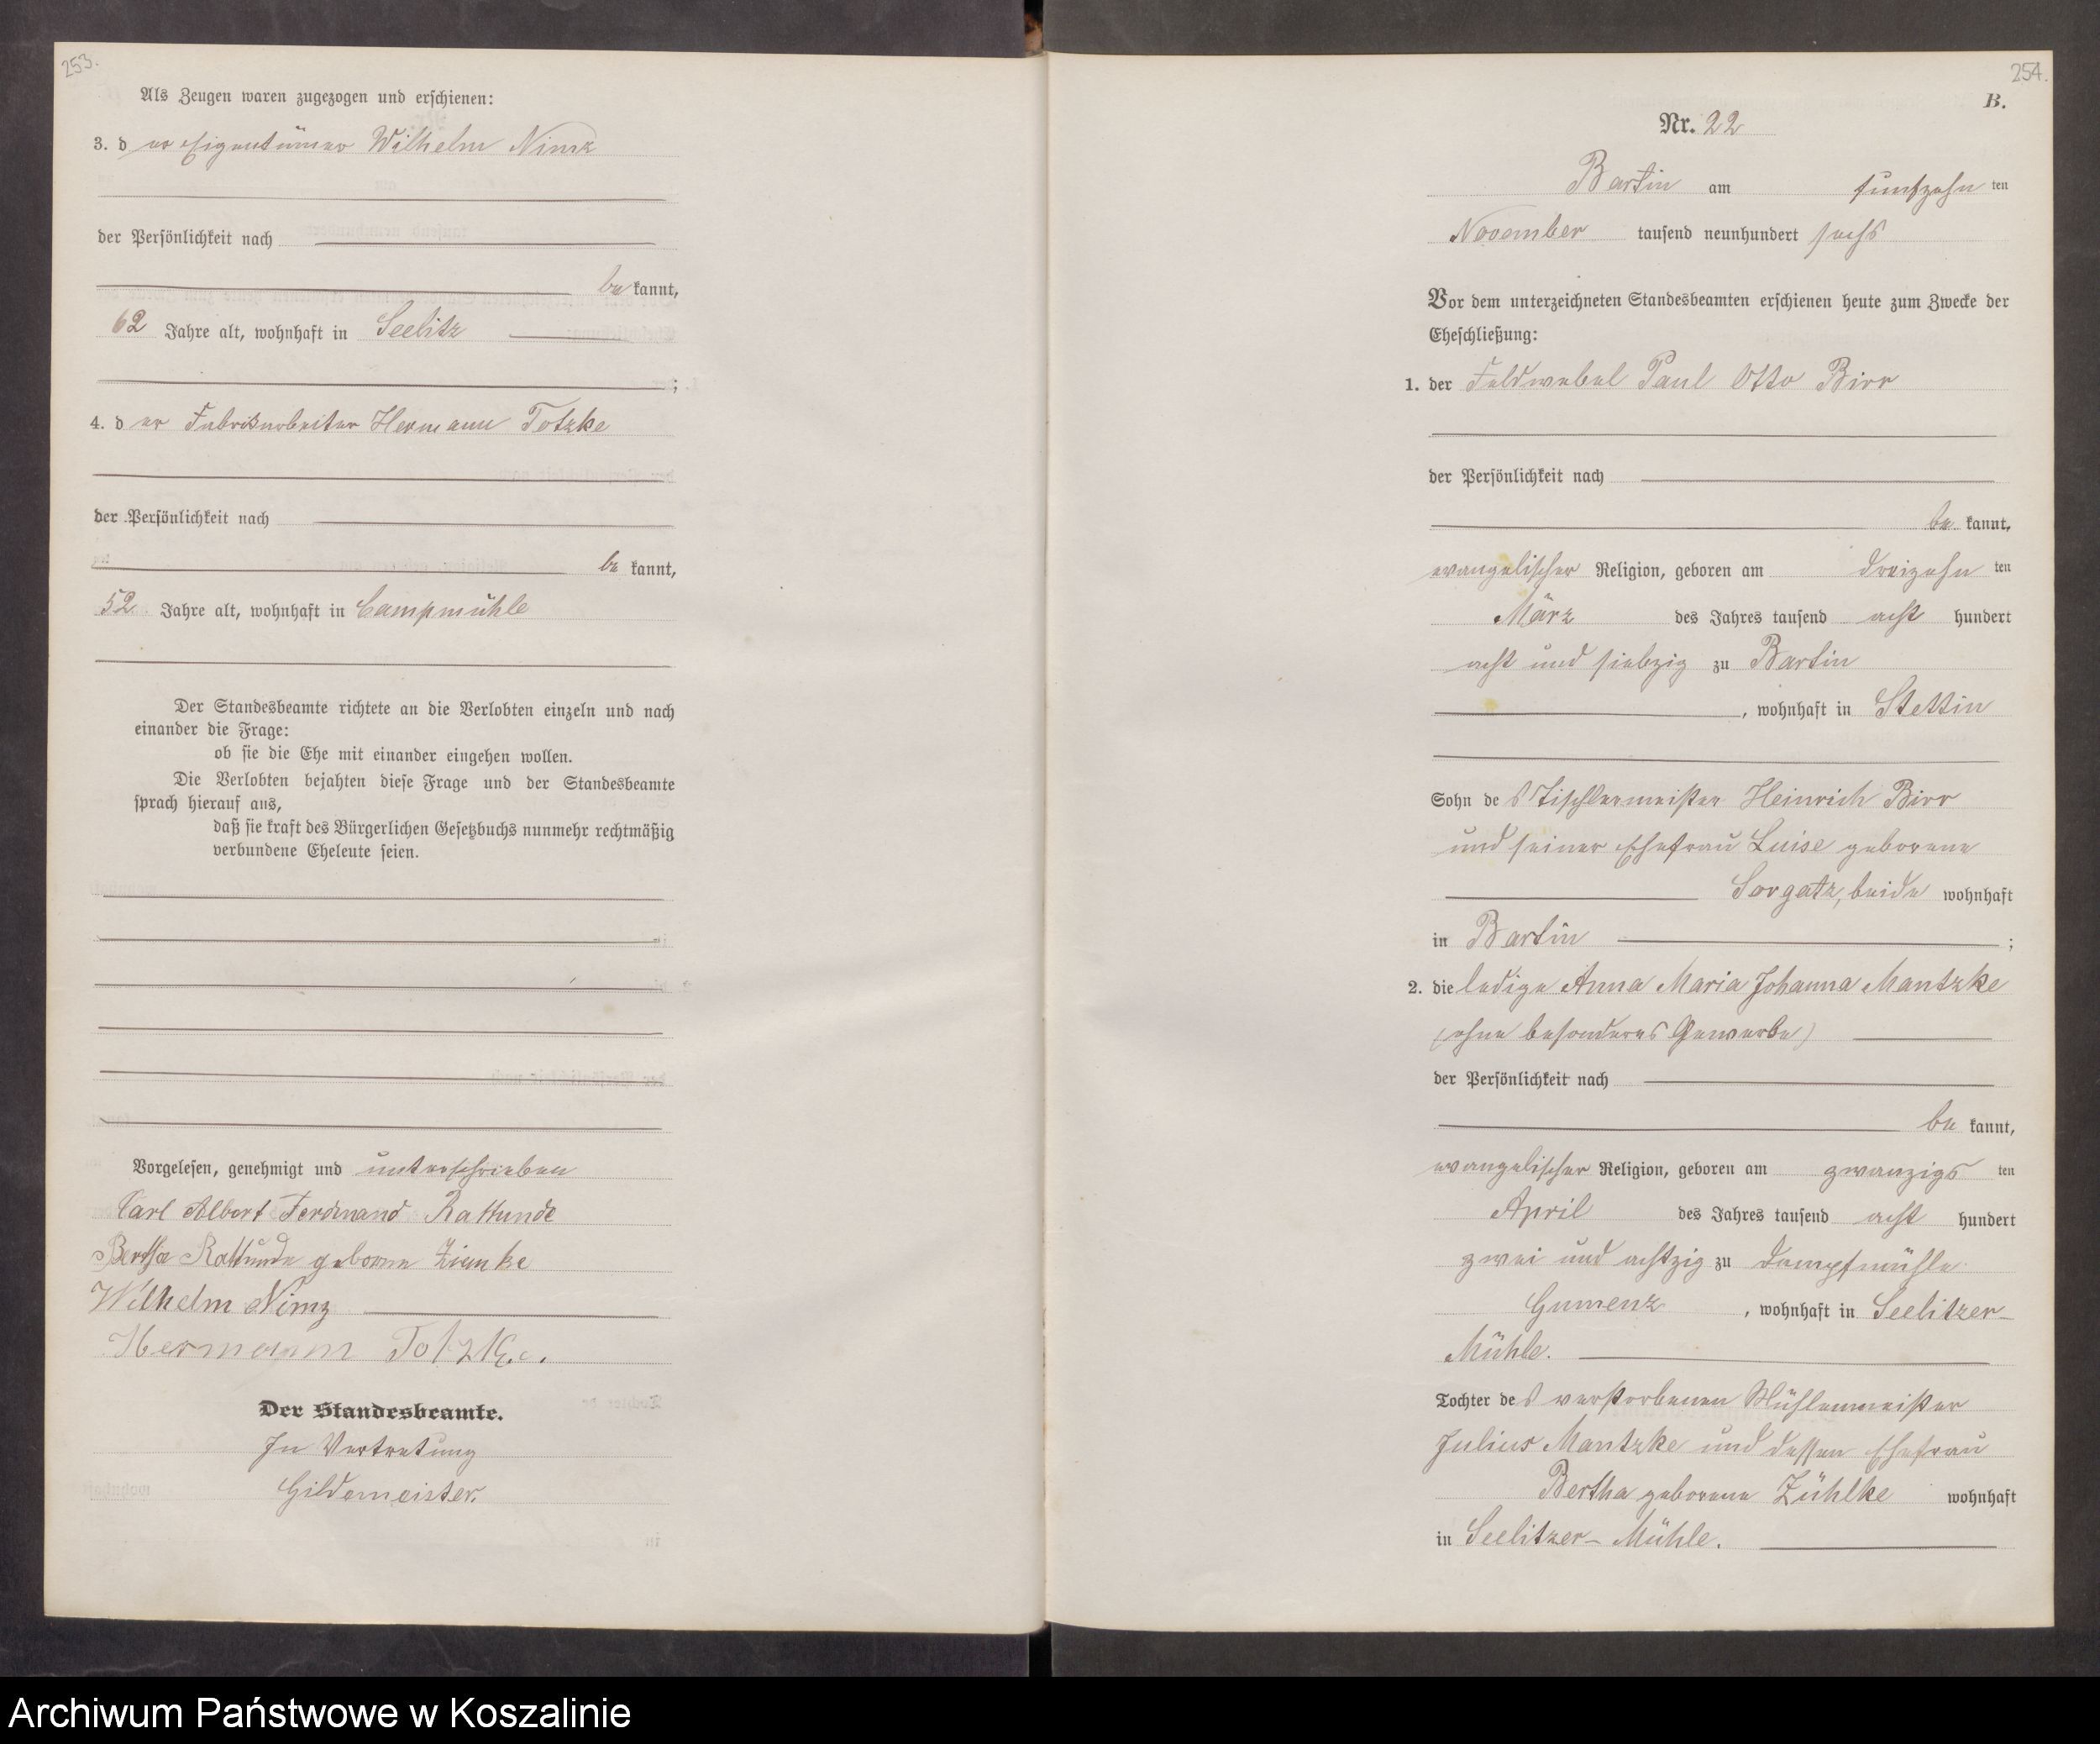 253.
Als Zeugen waren zugezogen und erschienen:
3. d er Eigentümer Wilhelm Nimz
der Persönlichkeit nach
be kannt,
62 Jahre alt, wohnhaft in Seelitz
;
4. d er Fabrikarbeiter Hermann Totzke
der Persönlichkeit nach
be kannt,
52 Jahre alt, wohnhaft in Campmühle
Der Standesbeamte richtete an die Verlobten einzeln und nach
einander die Frage:
ob sie die Ehe mit einander eingehen wollen.
Die Verlobten bejahten diese Frage und der Standesbeamte
sprach hierauf aus,
daß sie kraft des Bürgerlichen Gesetzbuchs nunmehr rechtmäßig
verbundene Eheleute seien.
Vorgelesen, genehmigt und unterschrieben
Carl Albert Ferdinand Rattunde
Bertha Rattunde geborene Ziemke
Wilhelm Nimz
Hermann Totzke.
Der Standesbeamte.
In Vertretung
Gildemeister.
254.
B.
Nr. 22
Bartin am fünfzehn ten
November tausend neunhundert sechs
Vor dem unterzeichneten Standesbeamten erschienen heute zum Zwecke der
Eheschließung:
1. der Feldwebel Paul Otto Birr
der Persönlichkeit nach
be kannt,
evangelischer Religion, geboren am dreizehn ten
März des Jahres tausend acht hundert
acht und siebzig zu Bartin
, wohnhaft in Stettin
Sohn de s Tischlermeister Heinrich Birr
und seiner Ehefrau Luise geborene
Sorgatz, beide wohnhaft
in Bartin ;
2. die ledige Anna Maria Johanna Mantzke
(ohne besonderes Gewerbe)
der Persönlichkeit nach
be kannt,
evangelischer Religion, geboren am zwanzigs ten
April des Jahres tausend acht hundert
zwei und achtzig zu Dampfmühle
Gumenz , wohnhaft in Seelitzer-
Mühle.
Tochter de s verstorbenen Mühlenmeister
Julius Mantzke und dessen Ehefrau
Bertha geborene Zühlke wohnhaft
in Seelitzer-Mühle.
Archiwum Państwowe w Koszalinie